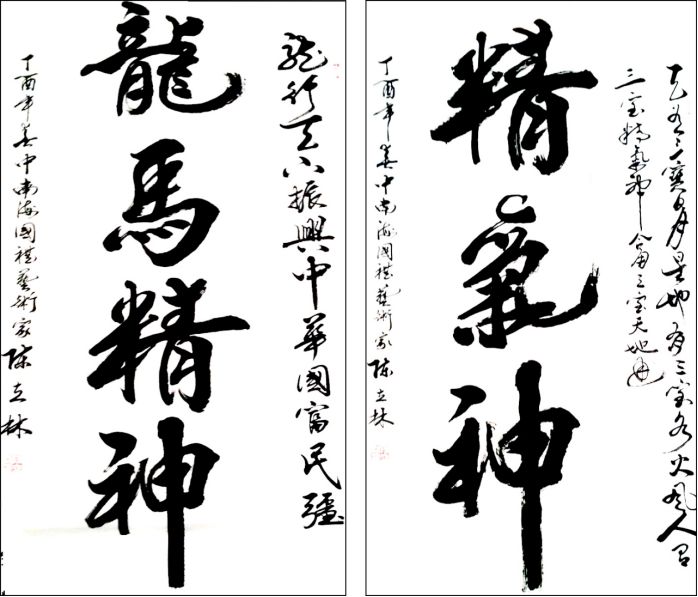 龍行天下振興中華國富民彊
龍馬精神
丁酉年春中南海國禮藝術家陳立林
天有三寶日月星地有三宝水火風人
三宝精氣神合用三宝天地通
精氣神
丁酉年春中南海國禮藝術家陳立林